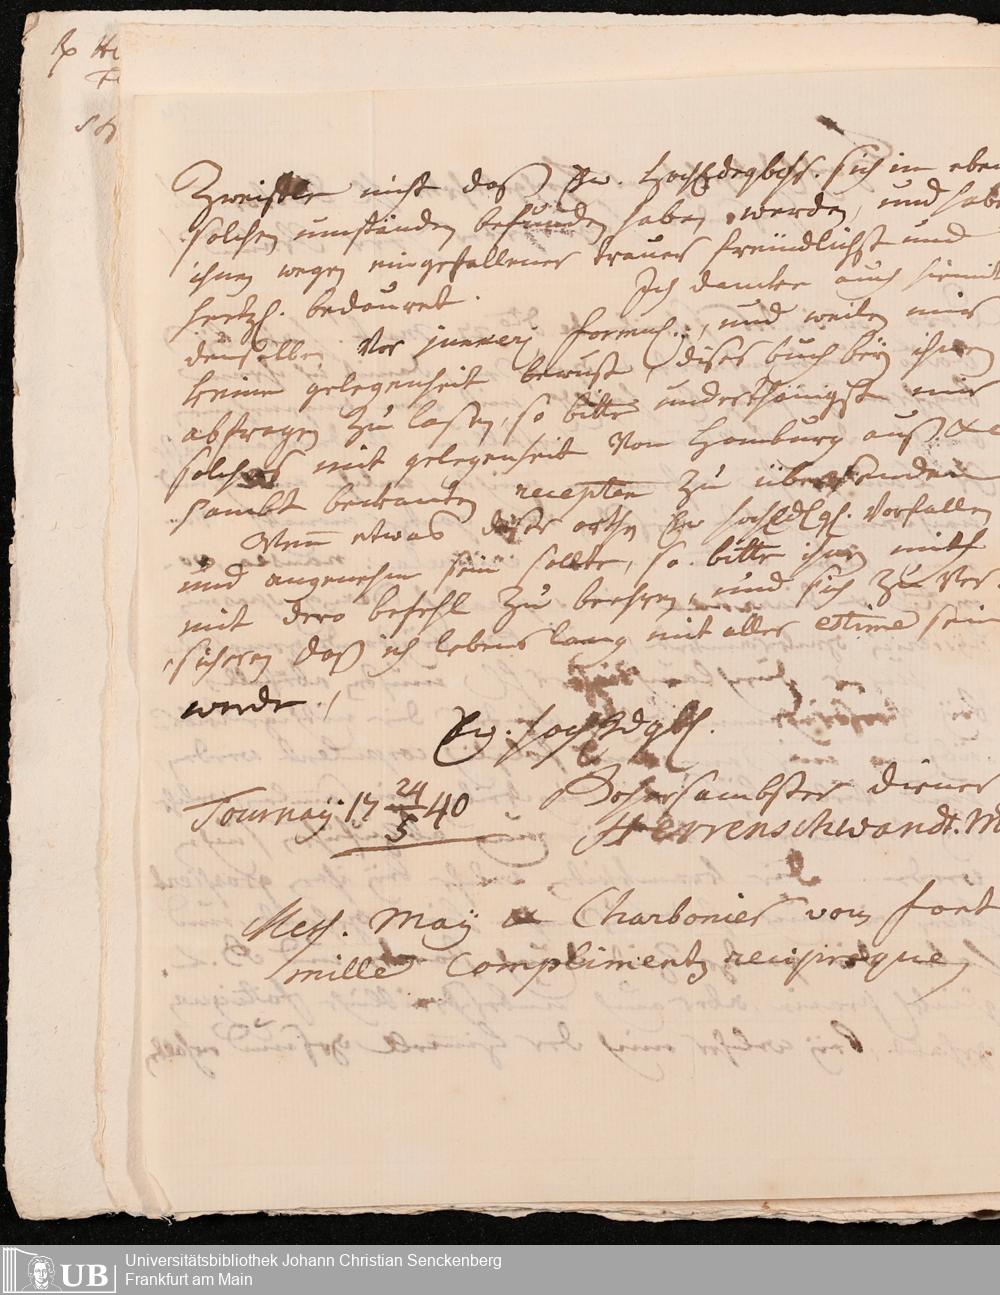 Zweifle nicht daß Ew. HochEdelgbhr. sich in eben
solchen umständen befunden haben werden, und habe
ihnen wegen eingefallener trauer freündlichst und
hertzl. bedauret. Ich dancke auch hiemit
denselben vor junkerj formul., und weilen mir
keine gelegenheit bewust, dises buch beÿ ihnen
abfragen zu lasen, so bitte underthänigst mir
solches mit gelegenheit von Homburg auß
sambt bewusten recepten zu übersenden
Wenn etwas diser orthen Ew HochEdlgb. vorfallen
und angenehm sein sollte, so bitte ihnen mich
mit dero befehl zu beehren, und sich zu ver
sicheren daß ich lebens lang mit aller estime sein
werde.
Ew. HochEdgbl.
Tournaÿ 17 24/5 40
gehorsambster diener
Herrenschwandt. M
Mess. Maÿ & Charbonier vom font
mille Compliments reciproque
Universitätsbibliothek Johann Christian Senckenberg
Frankfurt am Main
UB